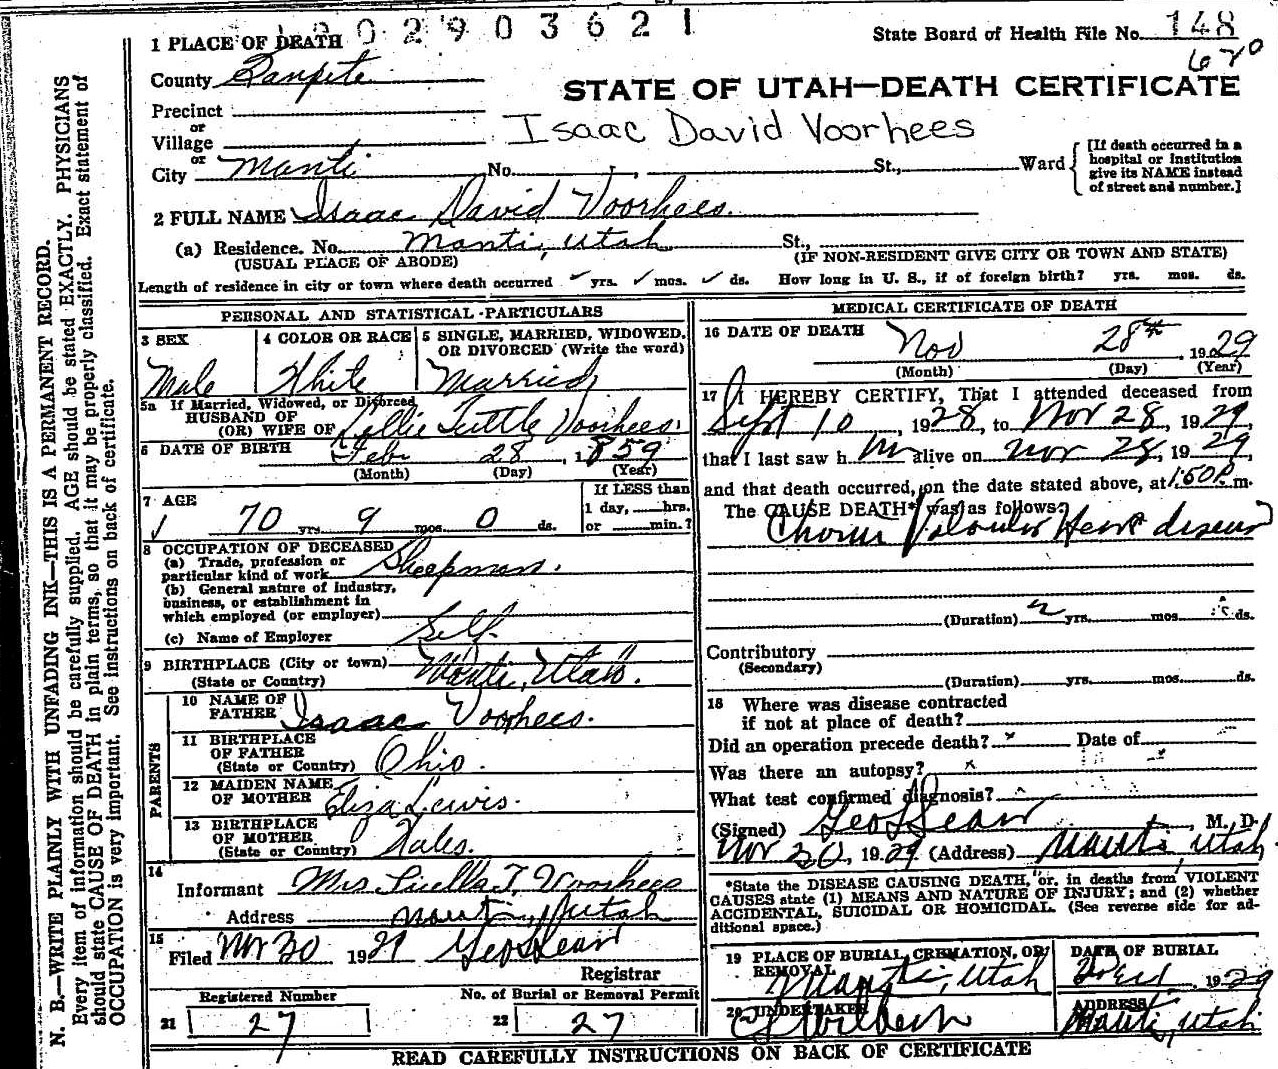 1902903621
State Board of Health File No. 148
620
1 PLACE OF DEATH
County Sanpete
STATE OF UTAH—DEATH CERTIFICATE
Precinct
or
Village
Isaac David Voorhees
or
City Manti No. St., Ward
[If death occurred in a
hospital or institution
give its NAME instead
of street and number.]
2 FULL NAME Isaac David Voorhees.
(a) Residence. No. Manti, Utah St.,
(USUAL PLACE OF ABODE) (IF NON-RESIDENT GIVE CITY OR TOWN AND STATE)
Length of residence in city or town where death occurred yrs. mos. ds. How long in U. S., if of foreign birth? yrs. mos. ds.
PERSONAL AND STATISTICAL PARTICULARS
3 SEX
Male
4 COLOR OR RACE
White
5 SINGLE, MARRIED, WIDOWED,
OR DIVORCED (Write the word)
Married
5a If Married, Widowed, or Divorced
HUSBAND OF
(OR) WIFE OF Tuttle Voorhees.
6 DATE OF BIRTH Feb 28, 1859
(Month) (Day) (Year)
7 AGE
70 yrs. 9 mos. 0 ds.
If LESS than
1 day, hrs.
or min.?
8 OCCUPATION OF DECEASED
(a) Trade, profession or
particular kind of work Sheepman.
(b) General nature of industry,
business, or establishment in
which employed (or employer)
(c) Name of Employer Self.
9 BIRTHPLACE (City or town)
(State or Country) Manti, Utah.
PARENTS
10 NAME OF
FATHER Isaac Voorhees.
11 BIRTHPLACE
OF FATHER
(State or Country) Ohio.
12 MAIDEN NAME
OF MOTHER Eliza Lewis.
13 BIRTHPLACE
OF MOTHER
(State or Country) Wales.
14
Informant Mrs T. Voorhees
Address Manti, Utah
15
Filed Nov 30 1929
Registrar
Registered Number
21 27
No. of Burial or Removal Permit
22 27
MEDICAL CERTIFICATE OF DEATH
16 DATE OF DEATH
Nov 28th, 1929
(Month) (Day) (Year)
17 I HEREBY CERTIFY, That I attended deceased from
Sept 10, 1928, to Nov 28, 1929,
that I last saw him alive on Nov 28, 1929,
and that death occurred, on the date stated above, at 1:50P.m.
The CAUSE DEATH* was as follows:
Valvular Heart disease
(Duration) yrs. mos. ds.
Contributory
(Secondary)
(Duration) yrs. mos. ds.
18 Where was disease contracted
if not at place of death?
Did an operation precede death? Date of
Was there an autopsy?
What test confirmed diagnosis?
(Signed) , M. D.
Nov 30, 1929 (Address) Manti, Utah
*State the DISEASE CAUSING DEATH, or, in deaths from VIOLENT
CAUSES state (1) MEANS AND NATURE OF INJURY; and (2) whether
ACCIDENTAL, SUICIDAL OR HOMICIDAL. (See reverse side for ad-
ditional space.)
19 PLACE OF BURIAL, CREMATION, OR
REMOVAL
Manti, Utah
DATE OF BURIAL
1929
20 UNDERTAKER
ADDRESS
Manti, Utah
READ CAREFULLY INSTRUCTIONS ON BACK OF CERTIFICATE
N. B.—WRITE PLAINLY WITH UNFADING INK—THIS IS A PERMANENT RECORD.
Every item of information should be carefully supplied. AGE should be stated EXACTLY. PHYSICIANS
should state CAUSE OF DEATH in plain terms, so that it may be properly classified. Exact statement of
OCCUPATION is very important. See instructions on back of certificate.